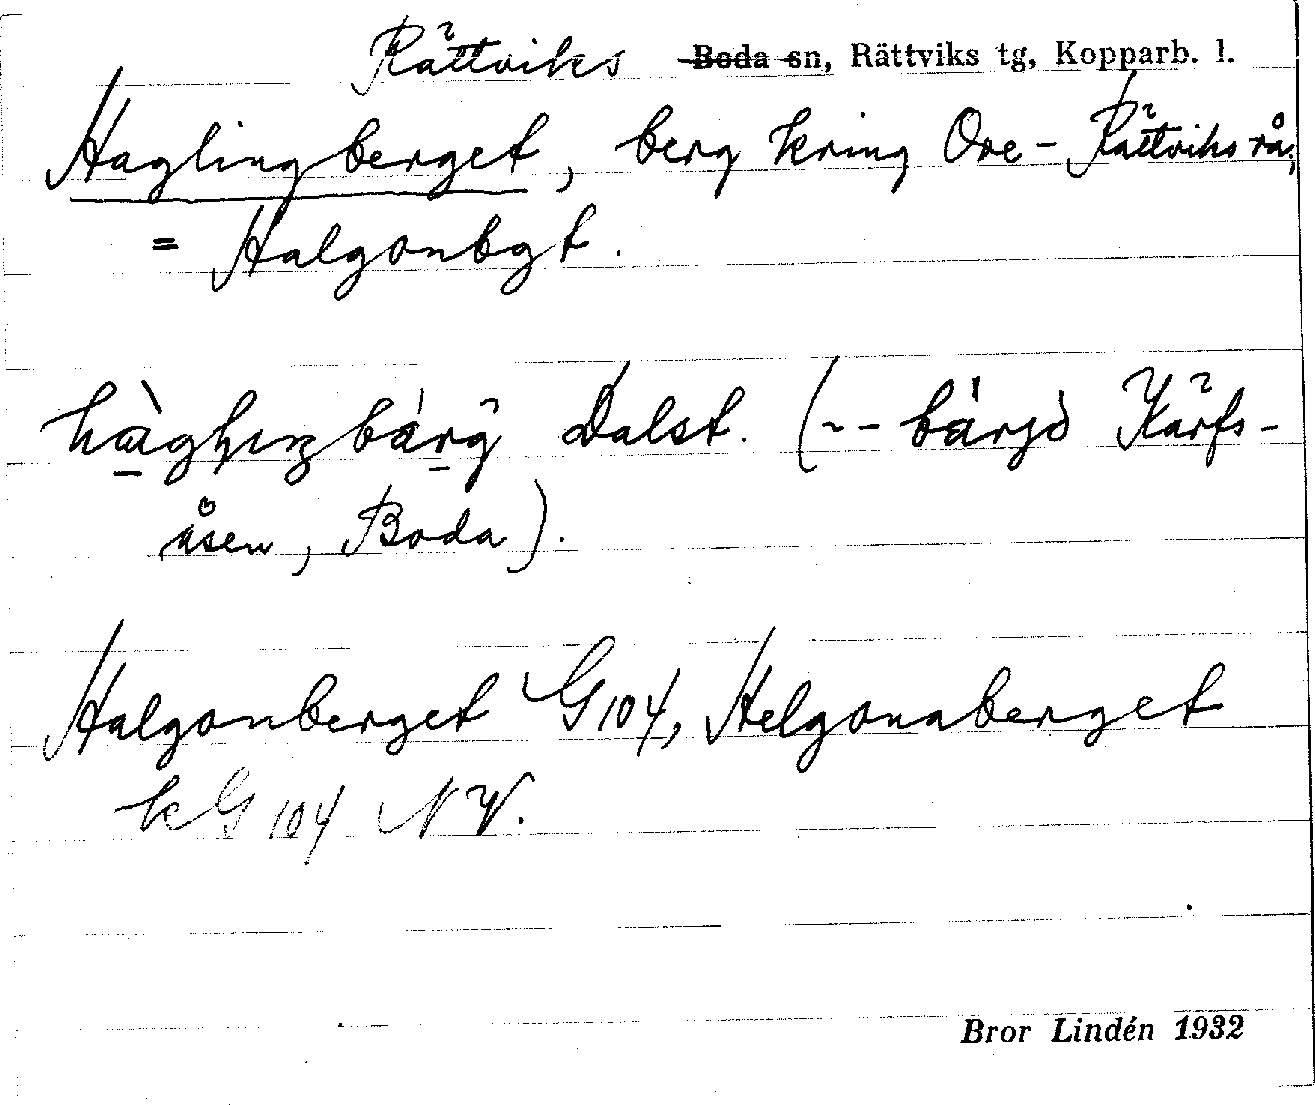 Rättviks Boda sn, Rättviks tg, Kopparb. l.
Haglingberget, berg kring Ore-Rättviks rå,
= Halgonbgt.
Dalst. (-- Kärfs-
åsen, Boda).
Halgonberget G104, Helgonaberget
kG104 NV.
Bror Lindén 1932